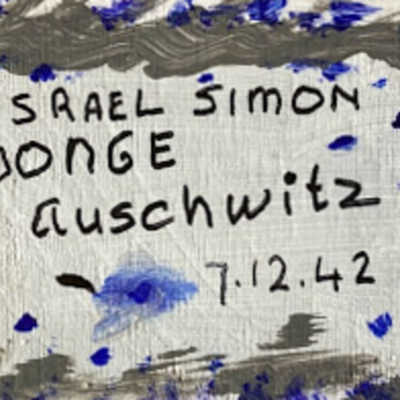 SRAEL SIMON
ONGE
auschwitz
7.12.42